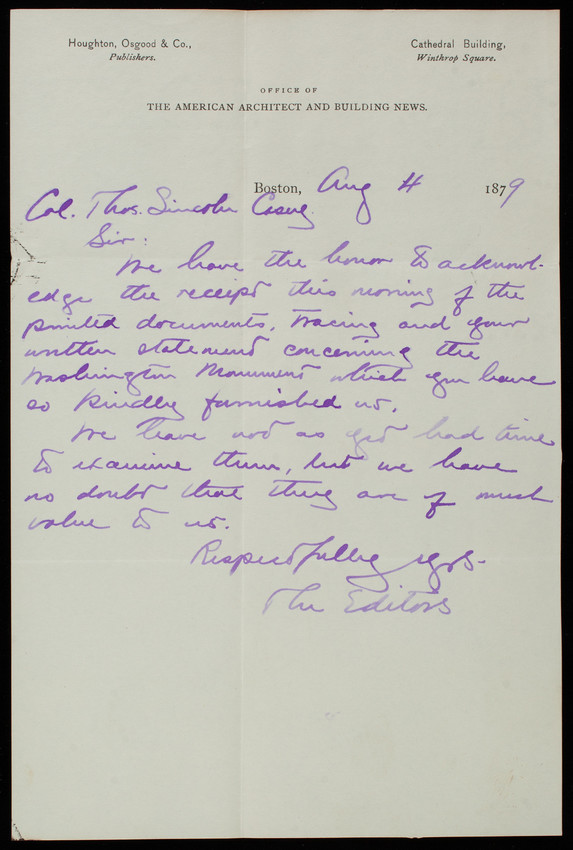 Houghton, Osgood & Co.,
Publishers.
Cathedral Building,
Winthrop Square.
OFFICE OF
THE AMERICAN ARCHITECT AND BUILDING NEWS.
Boston, Aug 4 1879
Col. Thos. Lincoln Casey.
Sir:
We have the honor to acknowl-
edge the receipt this morning of the
printed documents, tracing and your
written statement concerning the
Washington Monument which you have
so kindly furnished us.
We have not as yet had time
to examine them, but we have
no doubt that they are of much
value to us.
Respectfully yrs.
The Editors